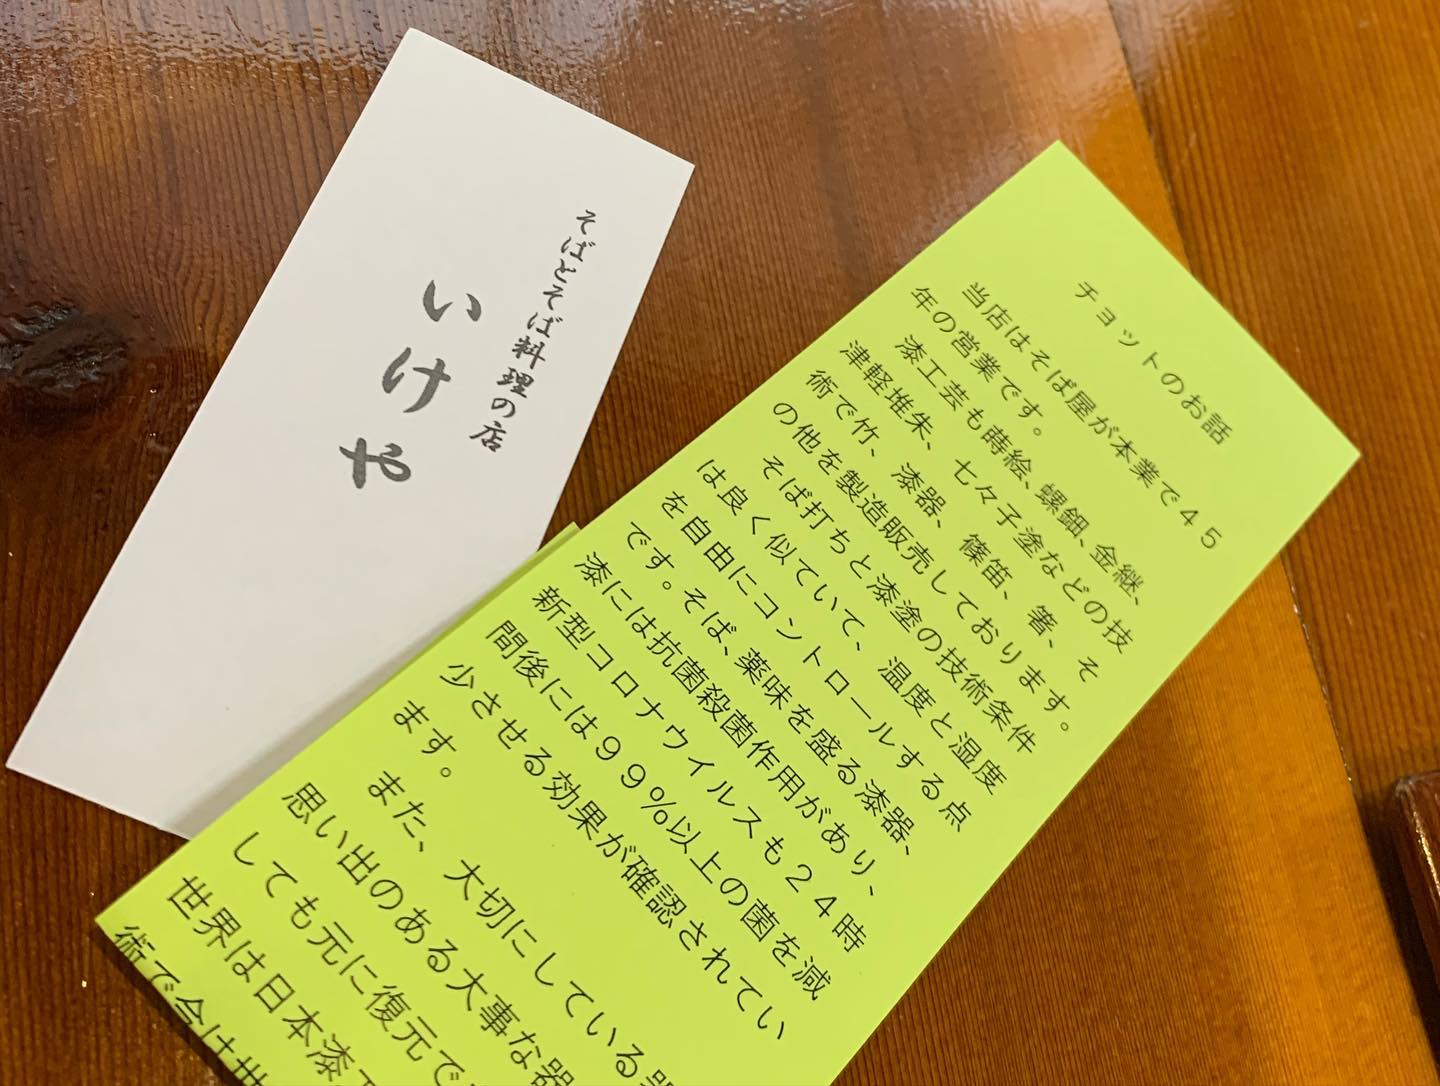 そばとそば料理の店
いけや
チョットのお話
当店はそば屋が本業で４５
年の営業です。
漆工芸も蒔絵、螺鈿、金継、
津軽堆朱、七々子塗などの技
術で竹、漆器、篠笛、箸、そ
の他を製造販売しております。
そば打ちと漆塗の技術条件
は良く似ていて、温度と湿度
を自由にコントロールする点
です。そば、薬味を盛る漆器、
漆には抗菌殺菌作用があり、
新型コロナウイルスも２４時
間後には９９％以上の菌を減
少させる効果が確認されてい
ます。
また、大切にしている
思い出のある大事な器
しても元に復元で
世界は日本漆
術で今は世